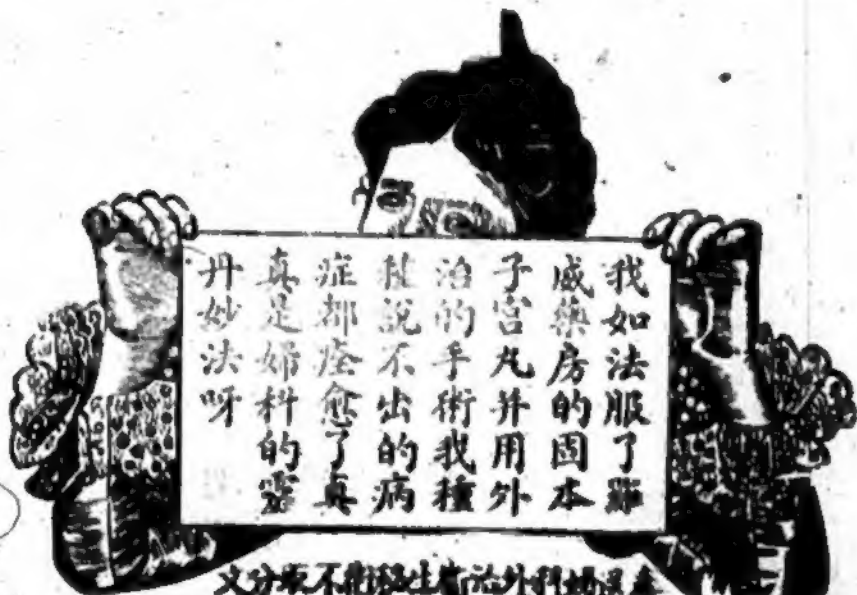 我如法服了羅
威藥房的固本
子宮丸并用外
治的手術我種
種說不出的病
症都痊愈了真
真是婦科的靈
丹妙法呀